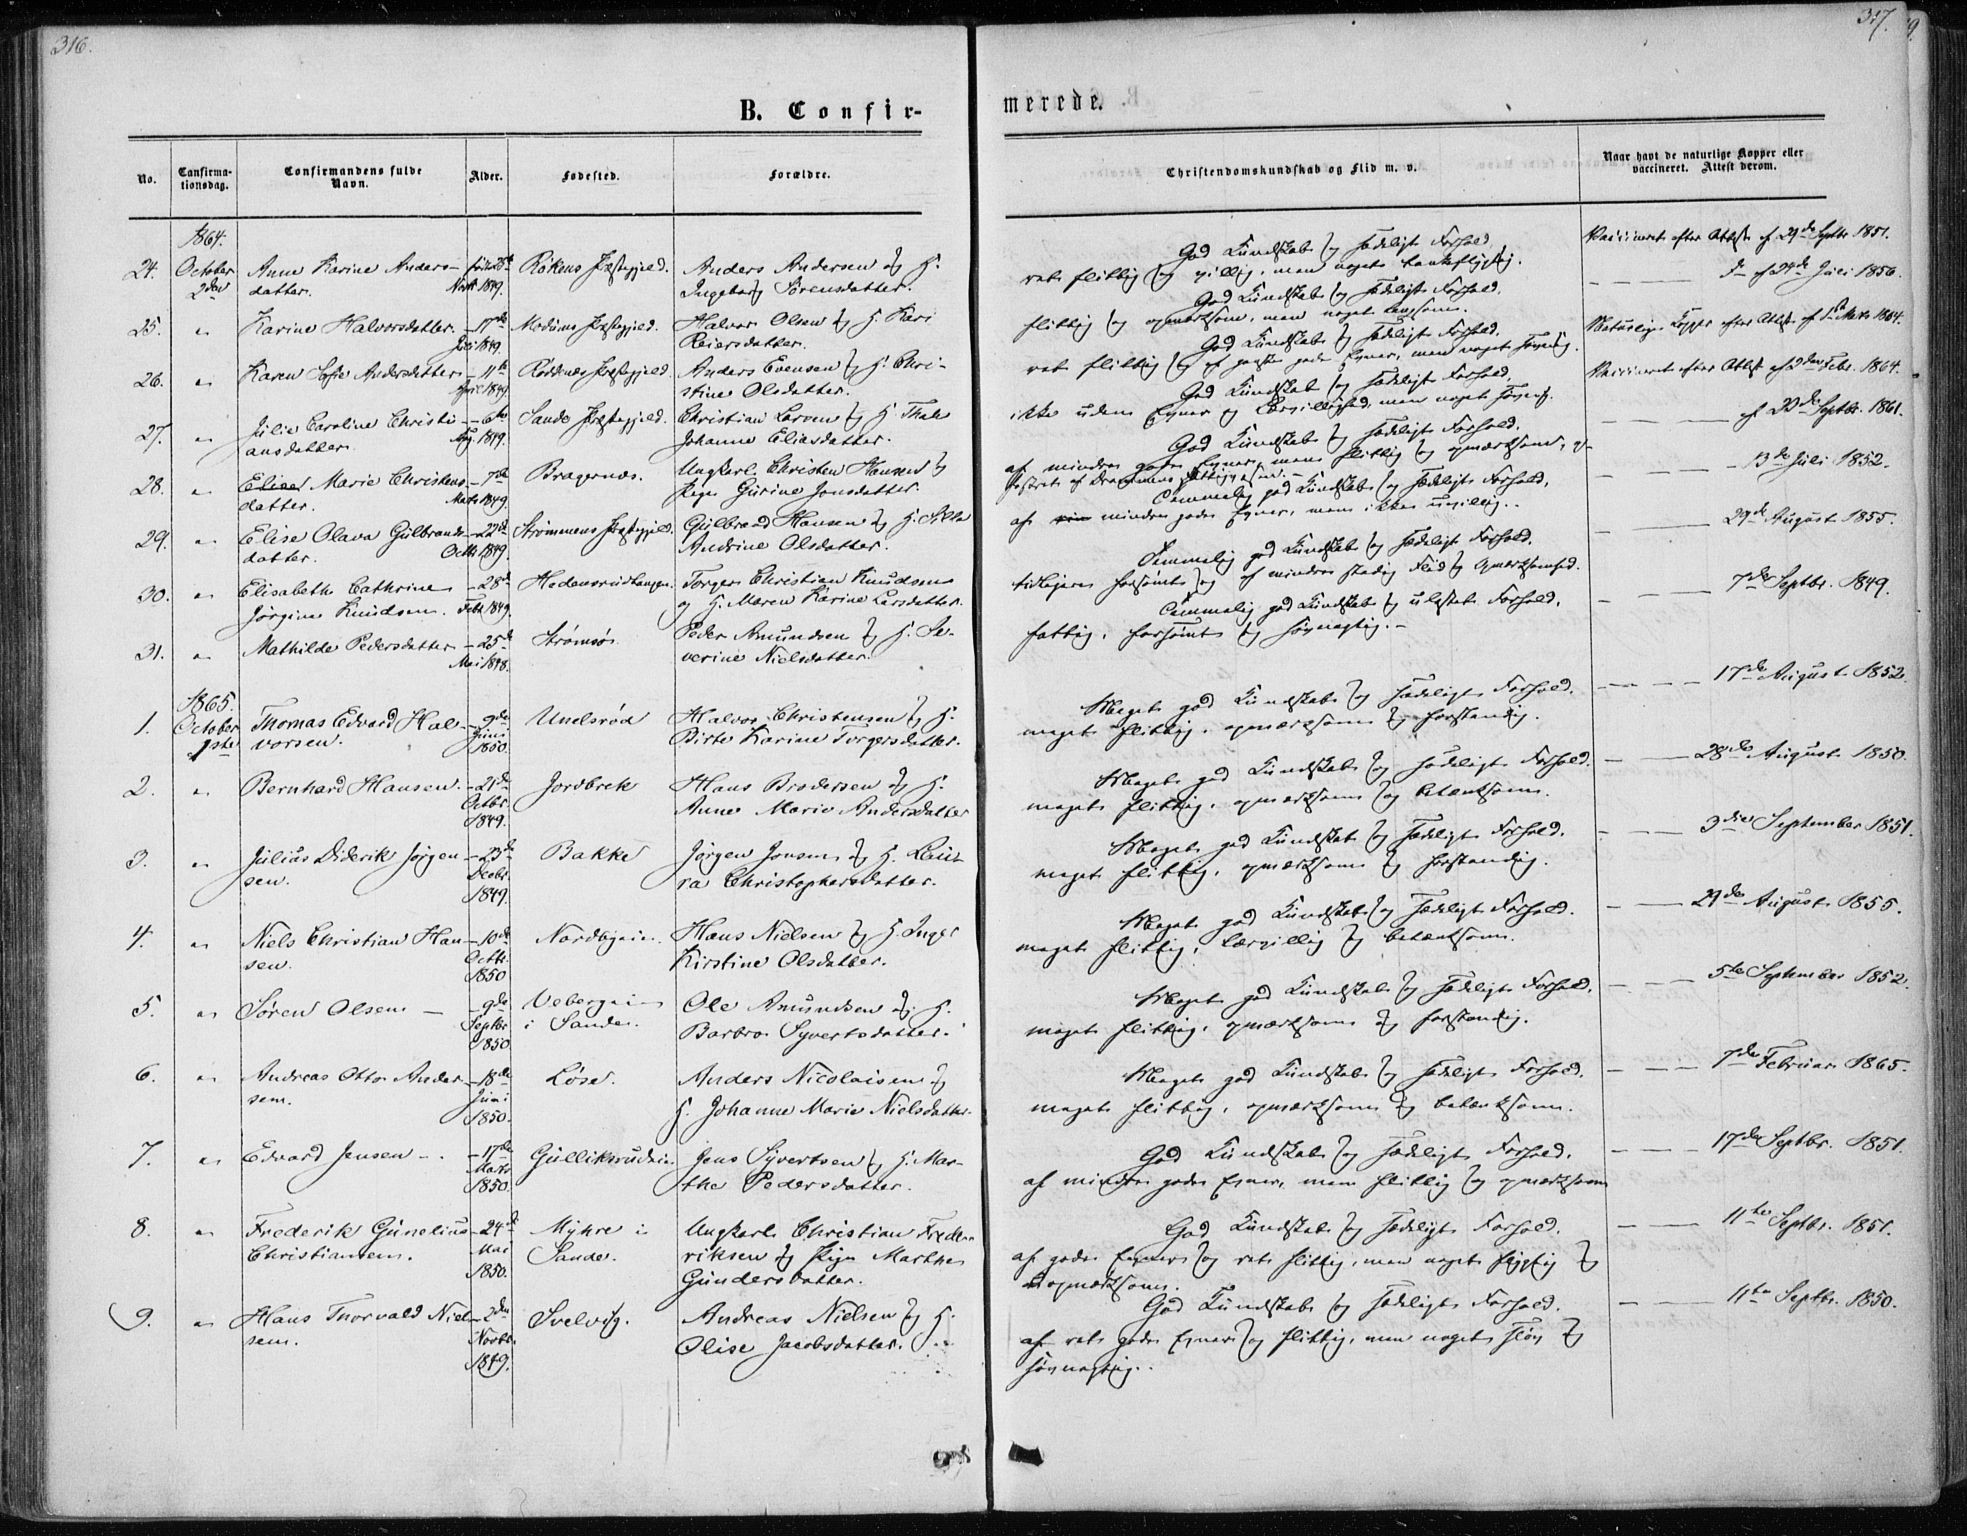 316.
317.
B. Confir-
merede.
No.
Confirma-
tionsdag.
Confirmandens fulde
Navn.
Alder.
Fødested.
Forældre.
Christendomskundskab og Flid m. v.
Naar havt de naturlige Kopper eller
vaccineret. Attest derom.
1864.
24. October Anne Karine Anders- Røkens Præstegjeld. Anders Andersen og H.
2den datter. Novb 1849. Ingeborg Sørensdatter.
God Kundskab og sædeligt Forhold,
ret flittig og villig, men noget tankeflygtig.
Vaccineret efter Attest af 29de Septbr 1851.
d. af 24de Juli 1856.
25. " Karine Halvorsdatter. - 17de Modums Præstegjeld. Halvor Olsen og H. Kari
Juli 1849. Reiersdatter.
God Kundskab og sædeligt Forhold,
flittig og opmærksom, men noget langsom.
Naturlige Kopper efter Attest af Marts 1864.
26. " Karen Sofie Andersdatter - 11te Rødenes Præstegjeld Anders Evensen og H. Chri-
April 1849 stine Olsdatter.
God Kundskab og sædeligt Forhold,
ret flittig og af ganske gode Evner, men noget sløv.
Vaccineret efter Attest af 2den Febr. 1864.
27. " Julie Caroline Christi- - 6te Sande Præstegjeld. Christian Larsen og H. Thale
ansdatter. Aug. 1849. Johanne Eliasdatter.
God Kundskab og sædeligt Forhold,
ikke uden Evner og Lærvillighed, men noget sløv.
af 22de Septbr. 1861.
28. " Elise Marie Christens- - 7de Bragernæs. Ungkarl Christen Hansen og
datter. Marts 1849. Pige Gurine Jonsdatter.
God Kundskab og sædeligt Forhold,
af mindre gode Evner, men flittig og opmærksom,
13de Juli 1852.
29. " Elise Olava Gulbrands- - 22de Strømmens Præstegjeld Gulbrand Hansen og H. Silla
datter. Octb. 1849. Andrine Olsdatter.
Temmelig god Kundskab og sædeligt Forhold,
af mindre gode Evner, men ikke uvillig.
29de August 1855.
30. " Elisabeth Cathrine - 28de Hedensrudhaugen. Torger Christian Knudsen
Jørgine Knudsen. Feb 1849. og H. Maren Karine Larsdatter.
Temmelig god Kundskab og sædeligt Forhold,
tidligere forsømt og af mindre stadig Flid og Opmærksomhed.
7de Septbr. 1849.
31. " Mathilde Pedersdatter - 25de Strømsø. Peder Amundsen og H. Se-
Mai 1848. verine Nielsdatter.
Temmelig god Kundskab og ulastet Forhold,
fattig, forsømt og søvnagtig.
1865.
1. October Thomas Edvard Hal- - 9de Unelsrød Halvor Christensen og H.
1ste vorsen. Juni 1850. Birte Karine Torgersdatter.
Meget god Kundskab og sædeligt Forhold,
meget flittig, opmærksom og forstandig.
17de August 1852.
2. " Bernhard Hansen. - 21de Jordbrek Hans Brodersen og H.
Octbr. 1849. Anne Marie Andersdatter
Meget god Kundskab og sædeligt Forhold,
meget flittig, opmærksom og betænksom.
28de August 1850.
3. " Julius Diderik Jørgen- - 23de Bakke Jørgen Jonsen og H. Lau-
sen. Decbr. 1849. ra Christophersdatter.
Meget god Kundskab og sædeligt Forhold,
meget flittig, opmærksom og forstandig.
3die September 1851.
4. " Niels Christian Han- - 10de Nordbyeie. Hans Nielsen og H. Inger
sen. Octb. 1850 Kirstine Olsdatter.
Meget god Kundskab og sædeligt Forhold,
meget flittig, lærvillig og betænksom.
29de August 1855.
5. " Søren Olsen - - 9de Ole Amundsen og H.
Septbr 1850 i Sande. Barbro Syvertsdatter.
Meget god Kundskab og sædeligt Forhold,
meget flittig, opmærksom og forstandig.
5te September 1852.
6. " Andreas Otto Ander- - 18de Løser. Anders Nicolaisen og
sen. Juni 1850. H. Johanne Marie Nielsdatter.
Meget god Kundskab og sædeligt Forhold,
meget flittig, opmærksom og betænksom.
7de Februar 1865.
7. " Edvard Jensen - - 17de Gulliksrudeie. Jens Syvertsen og H. Mar-
Marts 1850. the Pedersdatter.
God Kundskab og sædeligt Forhold,
af mindre gode Evner, men flittig og opmærksom
17de Septbr. 1851.
8. " Frederik Gunelius - 24de Myhre i Ungkarl Christian Frede-
Christiansen. Mai 1850. Sande. riksen og Pige Marthe
Gundersdatter.
God Kundskab og sædeligt Forhold,
af gode Evner og ret flittig, men noget flygtig og
uopmærksom.
11te Septbr. 1851.
9. " Hans Thorvald Niel- - 2den Svelvig. Andreas Nielsen og H.
sen. Novbr. 1849. Olise Jacobsdatter.
God Kundskab og sædeligt Forhold,
af ret gode Evner og flittig, men noget sløv og
søvnagtig.
11te Septbr. 1850.